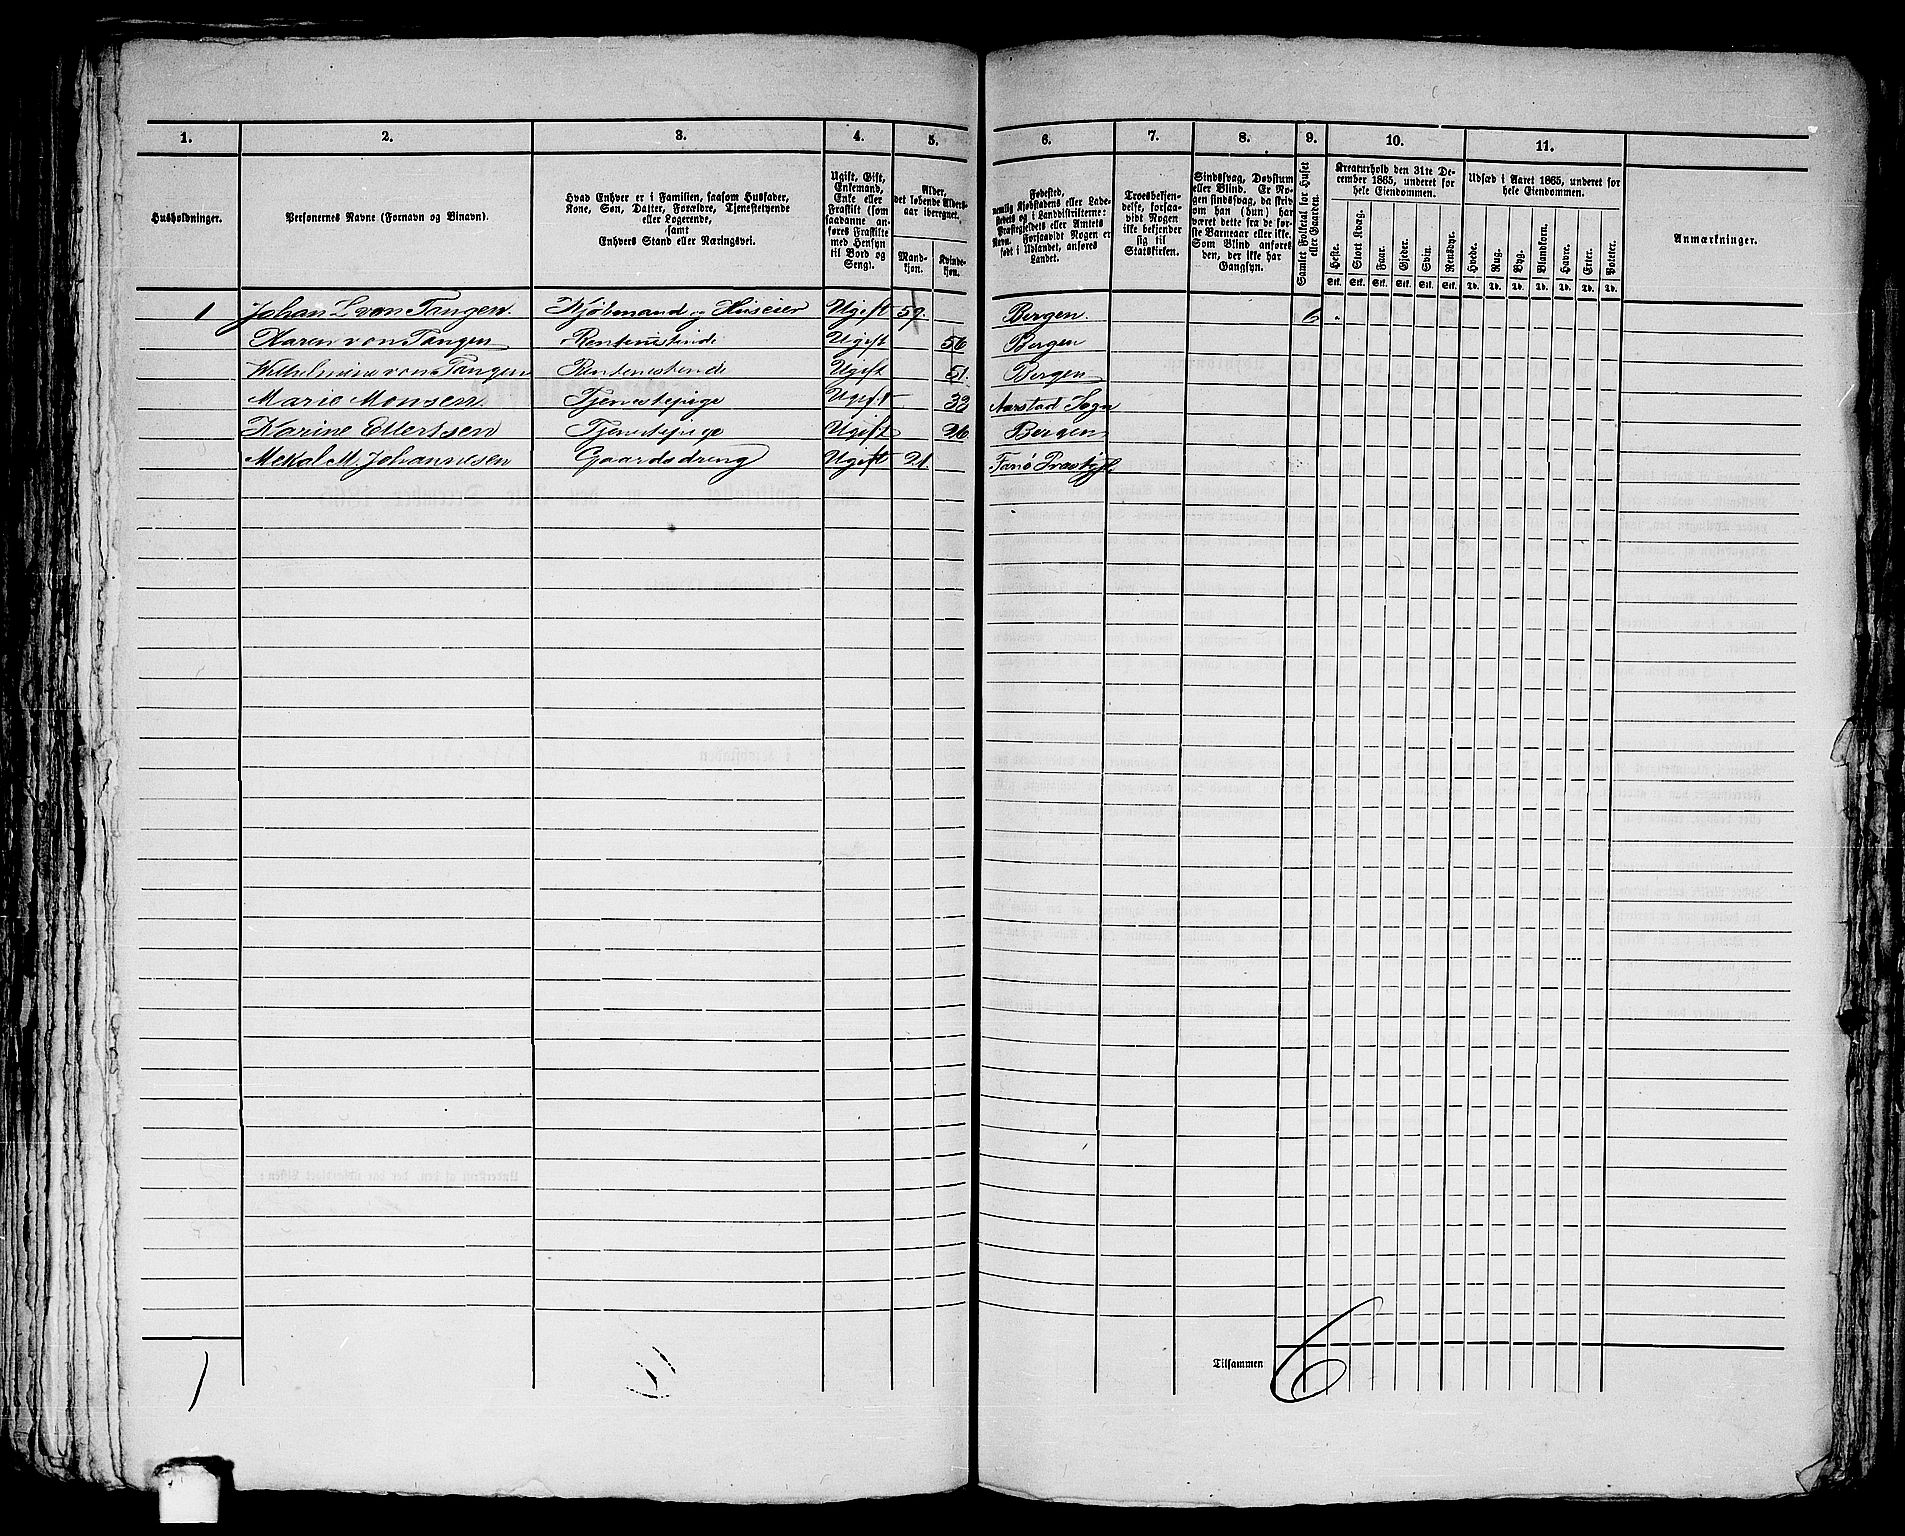 1. 2. 3. 4. 5. 6. 7. 8. 9. 10. 11.
Husholdninger.
Personernes Navne (Fornavn og Binavn).
Hvad Enhver er i Familien, saasom Husfader,
Kone, Søn, Datter, Forældre, Tjenestetyende
eller Logerende,
samt
Enhvers Stand eller Næringsvei.
Ugift, Gift,
Enkemand,
Enke eller
Fraskilt (som
saadanne an-
føres Fraskilte
med Hensyn
til Bord og
Seng).
Alder,
det løbende Alders-
aar iberegnet.
Mand-
kjøn.
Kvinde-
kjøn.
Fødested,
nemlig Kjøbstadens eller Lade-
stedets og i Landdistrikterne:
Præstegjeldets eller Amtets
Navn. Forsaavidt Nogen er
født i Udlandet, anføres
Landet.
Troesbekjen-
delse, forsaa-
vidt Nogen
ikke bekjender
sig til
Statskirken.
Sindssvag, Døvstum
eller Blind. Er No-
gen sindssvag, da skriv
om han (hun) har
været dette fra de før-
ste Barneaar eller ikke.
Som Blind anføres
den, der ikke har
Gangsyn.
Samlet Folketal for Huset
eller Gaarden.
Kreaturhold den 31te De-
cember 1865, underet for
hele Eiendommen.
Heste. Stort Kvæg. Faar. Gjeder. Svin. Rensdyr.
Stk. Stk. Stk. Stk. Stk. Stk.
Udsæd i Aaret 1865, underet for
hele Eiendommen.
Hvede. Rug. Byg. Blandkorn. Havre. Erter. Poteter.
Td. Td. Td. Td. Td. Td. Td.
Anmærkninger.
1 Johan L von Tangen. Kjøbmand og Huseier Ugift 59. Bergen. 6
Karen von Tangen Rentenistinde Ugift 56 Bergen
Wilhelmine von Tangen Rentenistinde Ugift 51. Bergen
Marie Monsen. Tjenestepige Ugift 33 Aarstad Sogn
Karine Ellertsen Tjenestepige Ugift 26 Bergen
Mekal M. Johannesen Gaardsdreng Ugift 21.
1
Tilsammen 6